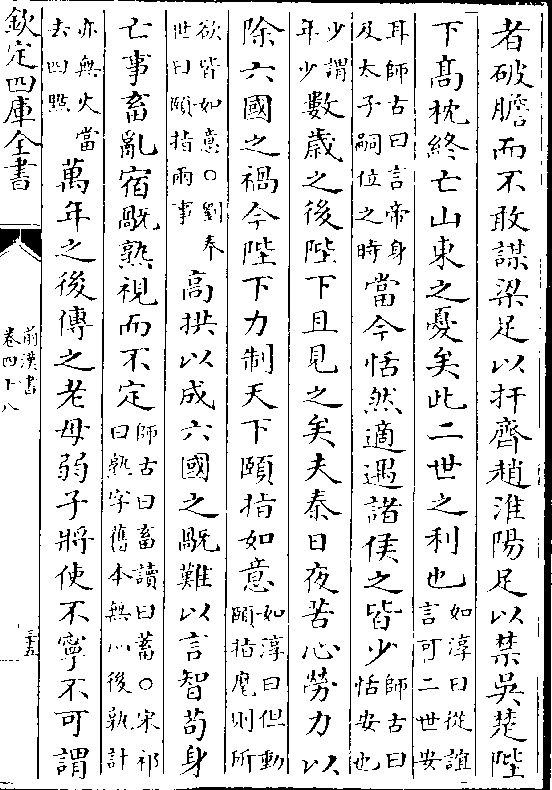 者破膽而不敢謀梁足以扞齊趙淮陽足以禁吳楚陛
下髙枕終亡山東之憂矣此二世之利也如淳曰從誼言可二世安
耳師古曰言帝身及太子嗣位之時當今恬然適遇諸侯之皆少師古曰恬安也
少謂年少數歲之後陛下且見之矣夫秦日夜苦心勞力以
除六國之禍今陛下力制天下頤指如意如淳曰但動頤指麾則所
欲皆如意○劉奉世曰頤指兩事髙拱以成六國之旤難以言智苟身
亡事畜亂宿旤熟視而不定師古曰畜讀曰蓄○宋祁曰熟字舊本無心後孰計
亦無火當去四㸃萬年之後傳之老母弱子將使不寧不可謂
欽定四庫全書
前漢書
卷四十八
二五